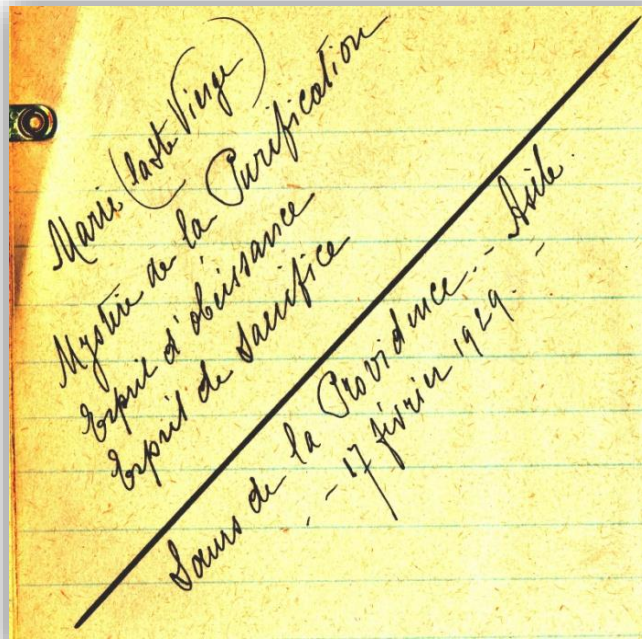 Marie (la Ste Vierge)
Mystère de la Purification
Esprit d'obéissance
Esprit de Sacrifice
Sœurs de la Providence. - Asile.
- 17 février 1929. -